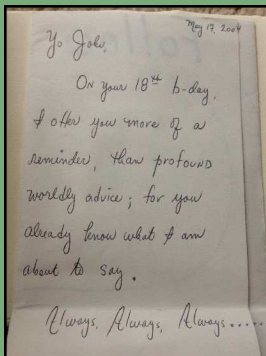 May 17, 2004
Yo Jake,
On your 18th b-day,
I offer you more of a
reminder, than profound
worldly advice; for you
already know what I am
about to say.
Always, Always, Always.....